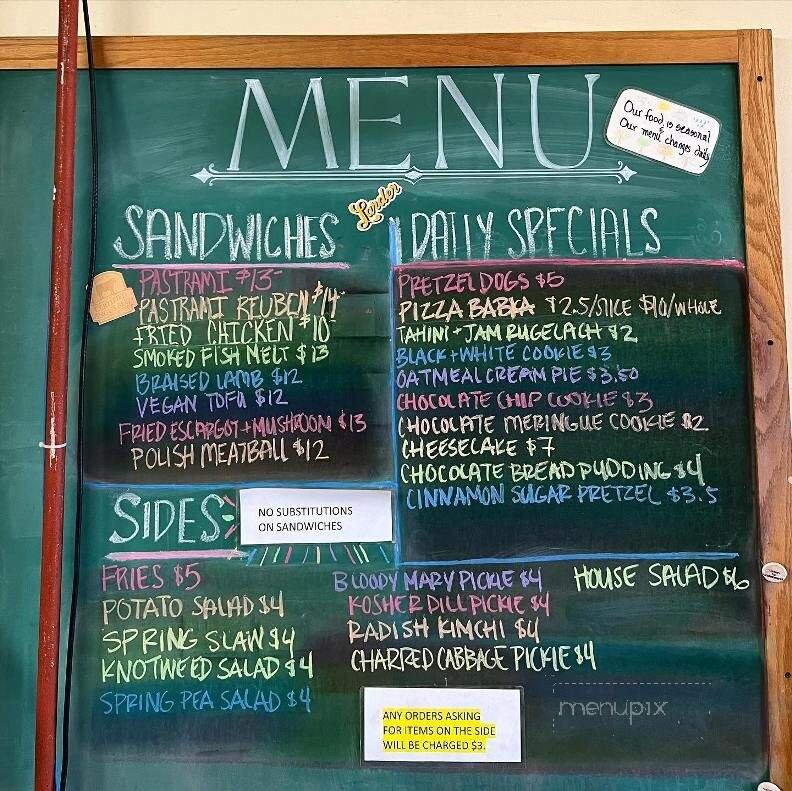 MENU
Our food is seasonal
&
Our menu changes daily
Larder
SANDWICHES
PASTRAMI $13-
PASTRAMI REUBEN $14-
FRIED CHICKEN $10-
SMOKED FISH MELT $13
BRAISED LAMB $12
VEGAN TOFU $12
FRIED ESCARGOT + MUSHROOM $13
POLISH MEATBALL $12
DAILY SPECIALS
PRETZEL DOGS $5
PIZZA BABKA $2.5/SLICE $10/WHOLE
TAHINI + JAM RUGELACH $2
BLACK + WHITE COOKIE $3
OATMEAL CREAM PIE $3.50
CHOCOLATE CHIP COOKIE $3
CHOCOLATE MERINGUE COOKIE $2
CHEESECAKE $7
CHOCOLATE BREAD PUDDING $4
CINNAMON SUGAR PRETZEL $3.5
SIDES
NO SUBSTITUTIONS
ON SANDWICHES
FRIES $5
POTATO SALAD $4
SPRING SLAW $4
KNOTWEED SALAD $4
SPRING PEA SALAD $4
BLOODY MARY PICKLE $4
KOSHER DILL PICKLE $4
RADISH KIMCHI $4
CHARRED CABBAGE PICKLE $4
HOUSE SALAD $6
ANY ORDERS ASKING
FOR ITEMS ON THE SIDE
WILL BE CHARGED $3.
menupix